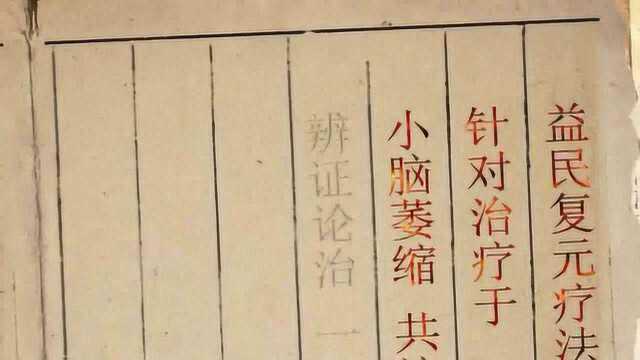 益民复元疗法
针对治疗于
小脑萎缩 共
辨证论治 一